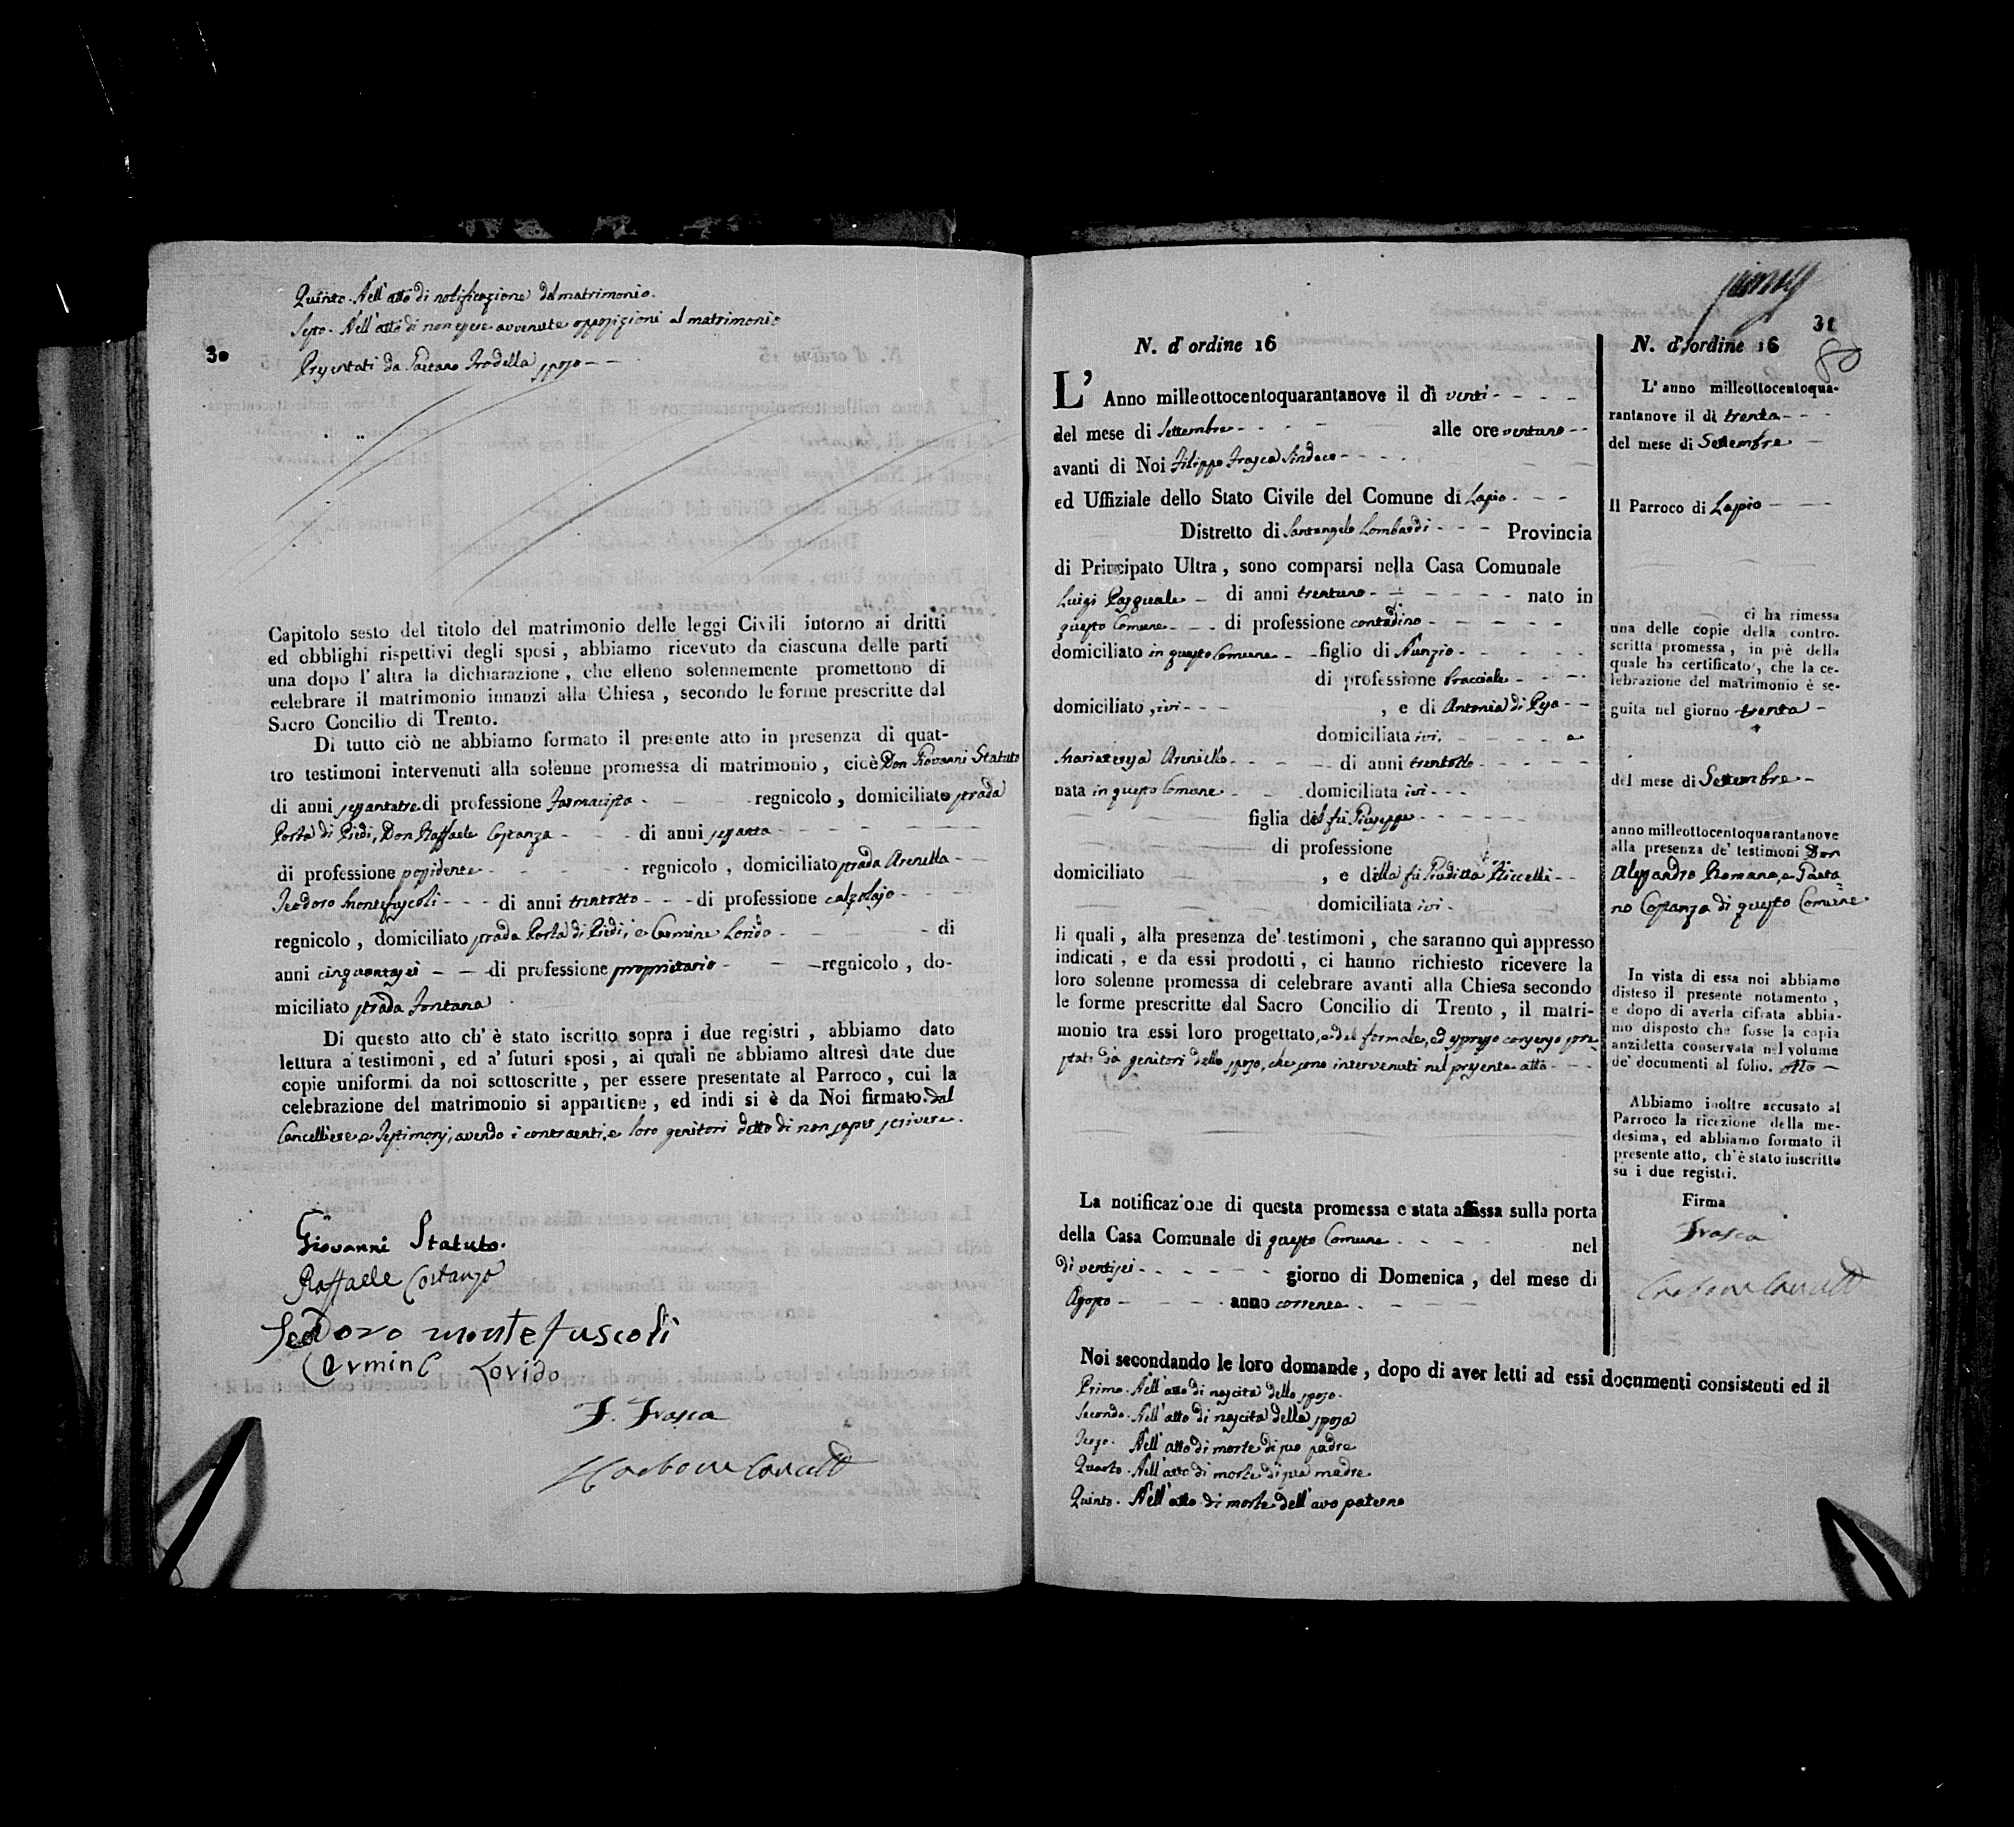 30
Quinto. Nell'atto di notificazione del matrimonio.
Sesto. Nell'atto di non essere avvenute opposizioni al matrimonio
Presentati da Gaetano Trodella sposo
Capitolo sesto del titolo del matrimonio delle leggi Civili intorno ai dritti
ed obblighi rispettivi degli sposi, abbiamo ricevuto da ciascuna delle parti
una dopo l'altra la dichiarazione, che elleno solennemente promettono di
celebrare il matrimonio innanzi alla Chiesa, secondo le forme prescritte dal
Sacro Concilio di Trento.
Di tutto ciò ne abbiamo formato il presente atto in presenza di quat-
tro testimoni intervenuti alla solenne promessa di matrimonio, cioè Don Giovanni Statuto
di anni sessantatre di professione Farmacista regnicolo, domiciliato strada
Porta di Piedi, Don Raffaele Costanza di anni sessanta
di professione possidente regnicolo, domiciliato strada Arenella
Teodoro Montefuscoli di anni trentotto di professione calzolajo
regnicolo, domiciliato strada Porta di Piedi, e Carmine Lorido di
anni cinquantasei di professione proprietario regnicolo, do-
miciliato strada Fontana
Di questo atto ch'è stato iscritto sopra i due registri, abbiamo dato
lettura a' testimoni, ed a' futuri sposi, ai quali ne abbiamo altresì date due
copie uniformi da noi sottoscritte, per essere presentate al Parroco, cui la
celebrazione del matrimonio si appartiene, ed indi si è da Noi firmato. dal
Cancelliere e Testimonj, avendo i contraenti, e loro genitori detto di non saper scrivere.
Giovanni Statuto.
Raffaele Costanza
Teodoro montefuscoli
Carmine Lorido
F. Frasca
31
80
N. d'ordine 16
L'Anno milleottocentoquarantanove il dì venti
del mese di Settembre alle ore ventuno
avanti di Noi Filippo Frasca Sindaco
ed Uffiziale dello Stato Civile del Comune di Lapio
Distretto di Santangelo Lombardi Provincia
di Principato Ultra, sono comparsi nella Casa Comunale
Luigi Pasquale di anni trentuno nato in
questo Comune di professione contadino
domiciliato in questo Comune figlio di Nunzio
di professione bracciale
domiciliato, ivi, e di Antonia di Pesa
domiciliata ivi.
Mariateresa Arenella di anni trentotto
nata in questo Comune domiciliata ivi
figlia del fù Giuseppe
di professione
domiciliato, e della fù Giuditta Riccelli
domiciliata ivi
li quali, alla presenza de' testimoni, che saranno quì appresso
indicati, e da essi prodotti, ci hanno richiesto ricevere la
loro solenne promessa di celebrare avanti alla Chiesa secondo
le forme prescritte dal Sacro Concilio di Trento, il matri-
monio tra essi loro progettato, e del formale, ed espresso consenso pre-
stato da' genitori dello sposo, che sono intervenuti nel presente atto
La notificazione di questa promessa e stata affissa sulla porta
della Casa Comunale di questo Comune nel
dì ventisei giorno di Domenica, del mese di
Agosto anno corrente
Noi secondando le loro domande, dopo di aver letti ad essi documenti consistenti ed il
Primo. Nell'atto di nascita dello sposo.
Secondo. Nell'atto di nascita della sposa
Terzo. Nell'atto di morte di suo padre
Quarto. Nell'atto di morte di sua madre
Quinto. Nell'atto di morte dell'avo paterno
N. d'ordine 16
L'anno milleottocentoqua-
rantanove il dì trenta
del mese di Settembre
Il Parroco di Lapio
ci ha rimessa
una delle copie della contro-
scritta promessa, in piè della
quale ha certificato, che la ce-
lebrazione del matrimonio è se-
guita nel giorno trenta
del mese di Settembre
anno milleottocentoquarantanove
alla presenza de' testimoni Don
Alessandro Romano, e Gaeta-
no Costanza di questo Comune
In vista di essa noi abbiamo
disteso il presente notamento,
e dopo di averla cifrata abbia-
mo disposto che fosse la copia
anzidetta conservata nel volume
de' documenti al folio. Otto
Abbiamo inoltre accusato al
Parroco la ricezione della me-
desima, ed abbiamo formato il
presente atto, ch'è stato inscritto
su i due registri.
Firma
Frasca